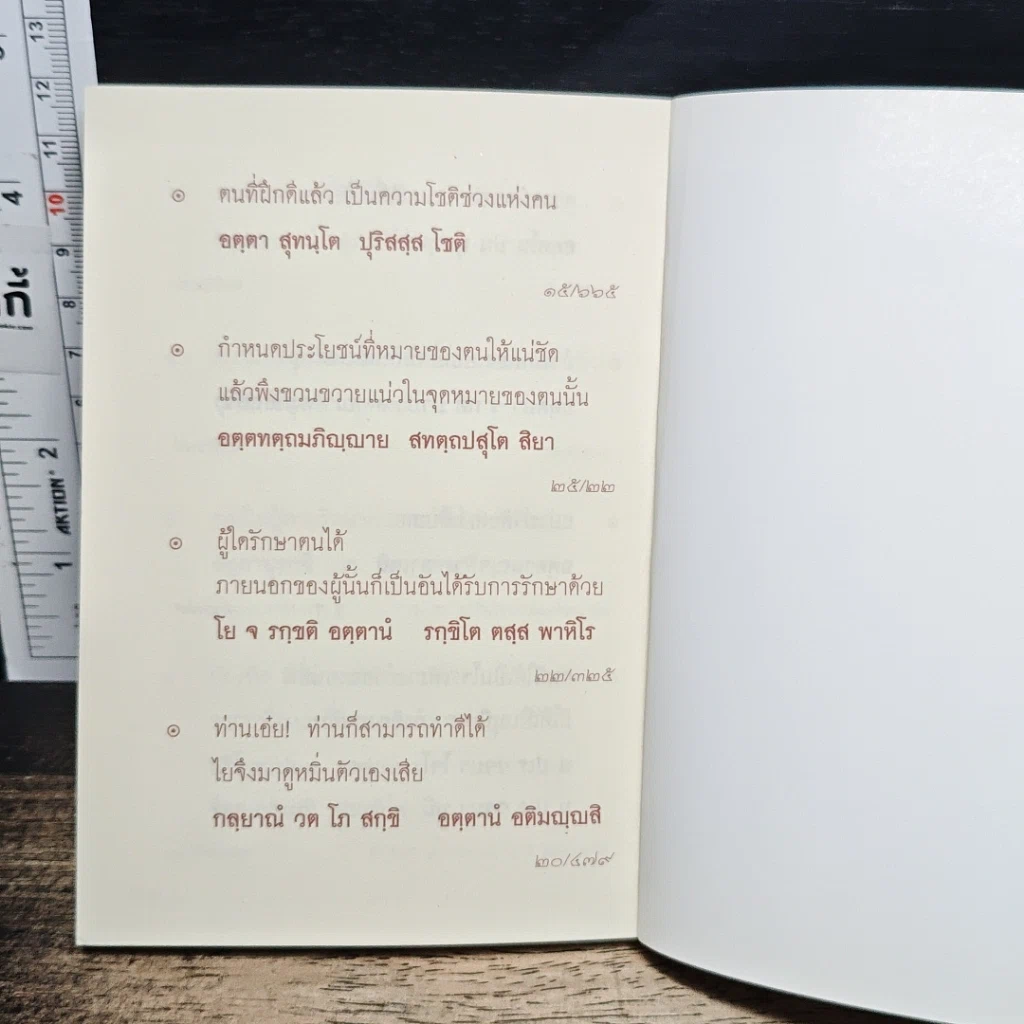 ๏ ตนที่ฝึกดีแล้ว เป็นความโชติช่วงแห่งคน
อตฺตา สุทนฺโต ปุริสสฺส โชติ
๑๕/๖๖๕
๏ กำหนดประโยชน์ที่หมายของตนให้แน่ชัด
แล้วพึงขวนขวายแน่วในจุดหมายของตนนั้น
อตฺตทตฺถมภิญฺญาย สทตฺถปสุโต สิยา
๒๕/๒๒
๏ ผู้ใดรักษาตนได้
ภายนอกของผู้นั้นก็เป็นอันได้รับการรักษาด้วย
โย จ รกฺขติ อตฺตานํ รกฺขิโต ตสฺส พาหิโร
๒๒/๓๒๕
๏ ท่านเอ๋ย! ท่านก็สามารถทำดีได้
ไยจึงมาดูหมิ่นตัวเองเสีย
กลฺยาณํ วต โภ สกฺขิ อตฺตานํ อติมญฺญสิ
๒๐/๔๗๙
13
12
11
10
9
8
7
4
2
1
AKTION